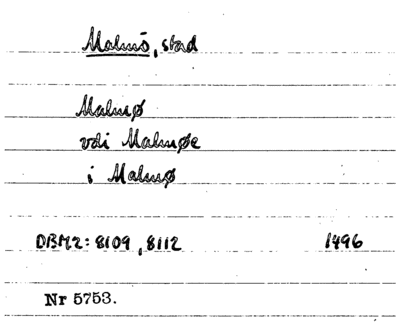 Malmö, stad
Malmø
vdi Malmøe
i Malmø
DBM2: 8109, 8112 1496
Nr 5753.